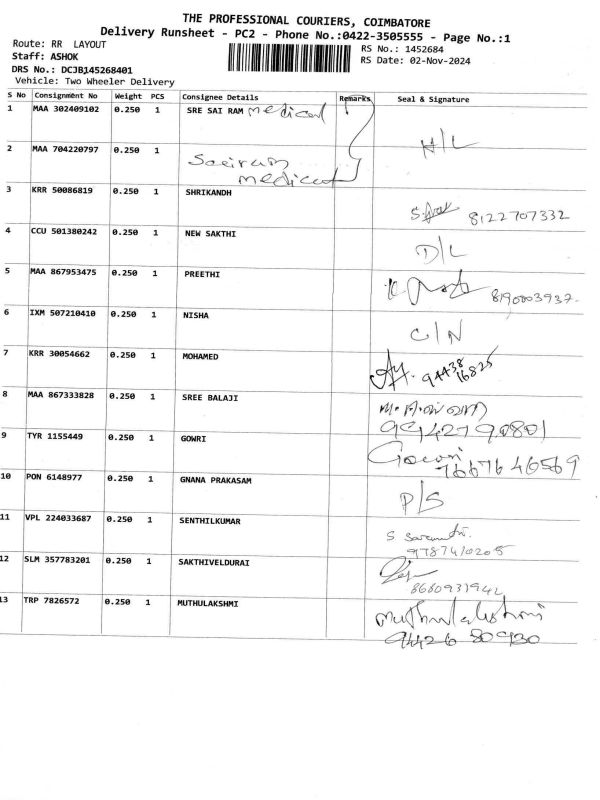 THE PROFESSIONAL COURIERS, COIMBATORE
Delivery Runsheet - PC2 - Phone No.:0422-3505555 - Page No.:1
Route: RR LAYOUT
RS No.: 1452684
Staff: ASHOK
RS Date: 02-Nov-2024
DRS No.: DCJB145268401
Vehicle: Two Wheeler Delivery
S No Consignment No Weight PCS Consignee Details Remarks Seal & Signature
1 MAA 302409102 0.250 1 SRE SAI RAM medical
2 MAA 704220797 0.250 1 Sairam
medical
N/L
3 KRR 50086819 0.250 1 SHRIKANDH
8122707332
4 CCU 501380242 0.250 1 NEW SAKTHI
D/L
5 MAA 867953475 0.250 1 PREETHI
8190003937
6 IXM 507210410 0.250 1 NISHA
C/N
7 KRR 30054662 0.250 1 MOHAMED
94438
16825
8 MAA 867333828 0.250 1 SREE BALAJI
9942790801
9 TYR 1155449 0.250 1 GOWRI
Gowri
7667646569
10 PON 6148977 0.250 1 GNANA PRAKASAM
P/S
11 VPL 224033687 0.250 1 SENTHILKUMAR
9787410205
12 SLM 357783201 0.250 1 SAKTHIVELDURAI
8680931942
13 TRP 7826572 0.250 1 MUTHULAKSHMI
Muthulakshmi
94426 80930